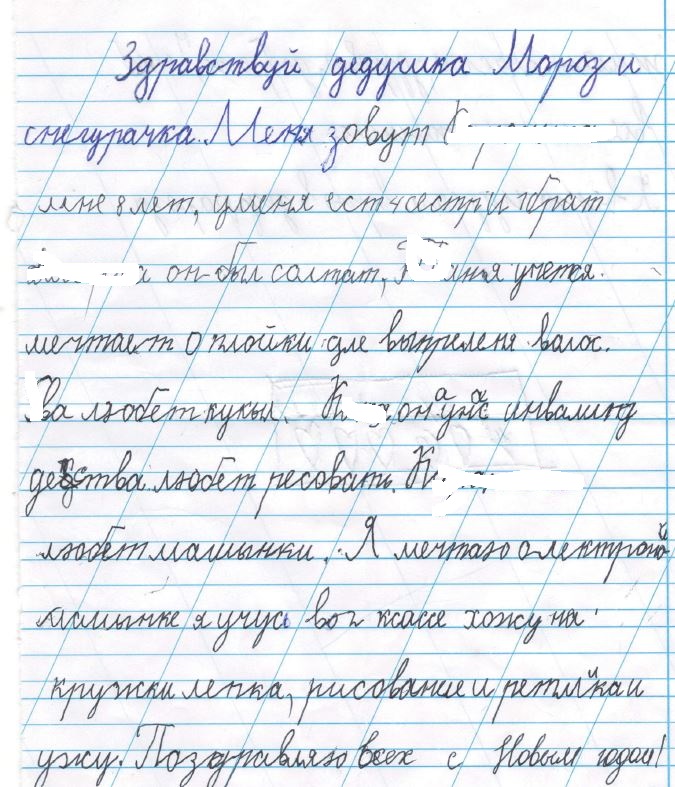 Здравствуй дедушка Мороз и
снегурачка. Меня зовут К
мне 8 лет, уменя ест 4 сестри 1 брат
а он был солтат, яня учется.
мечтает о плойки дле выпреленя валос.
ва любет кукы. К он а у нас инвалинд
детства любет ресовать. К
любет машынки. Я мечтаю о лектроной
машынке я учус во 2 класе хожу на
кружки лепка, рисование и ретмика и
ужу. Поздравляю всех с Новым годом!